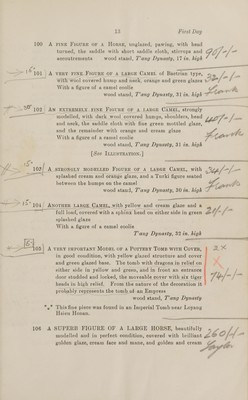 13 First Day
100 A FINE FIGURE OF A HORSE, unglazed, pawing, with head
turned, the saddle with short saddle cloth, stirrups and
accoutrements wood stand, T'ang Dynasty, 17 in. high
101 A VERY FINE FIGURE OF A LARGE CAMEL of Bactrian type,
with wool covered hump and neck, orange and green glaze
With a figure of a camel coolie
wood stand, T'ang Dynasty, 31 in. high
102 AN EXTREMELY FINE FIGURE OF A LARGE CAMEL, strongly
modelled, with dark wool covered humps, shoulders, head
and neck, the saddle cloth with fine green mottled glaze,
and the remainder with orange and cream glaze
With a figure of a camel coolie
wood stand, T'ang Dynasty, 31 in. high
[See ILLUSTRATION.]
A STRONGLY MODELLED FIGURE OF A LARGE CAMEL, with
splashed cream and orange glaze, and a Turki figure seated
between the humps on the camel
wood stand, T'ang Dynasty, 30 in. high
104 ANOTHER LARGE CAMEL, with yellow and cream glaze and a
full load, covered with a sphinx head on either side in green
splashed glaze
With a figure of a camel coolie
T'ang Dynasty, 32 in. high
105 A VERY IMPORTANT MODEL OF A POTTERY TOMB WITH COVER,
in good condition, with yellow glazed structure and cover
and green glazed base. The tomb with dragons in relief on
either side in yellow and green, and in front an entrance
door studded and locked, the moveable cover with six tiger
heads in high relief. From the nature of the decoration it
probably represents the tomb of an Empress
wood stand, T'ang Dynasty
*** This fine piece was found in an Imperial Tomb near Loyang
Hsien Honan.
106 A SUPERB FIGURE OF A LARGE HORSE, beautifully
modelled and in perfect condition, covered with brilliant
golden glaze, cream face and mane, and golden and cream